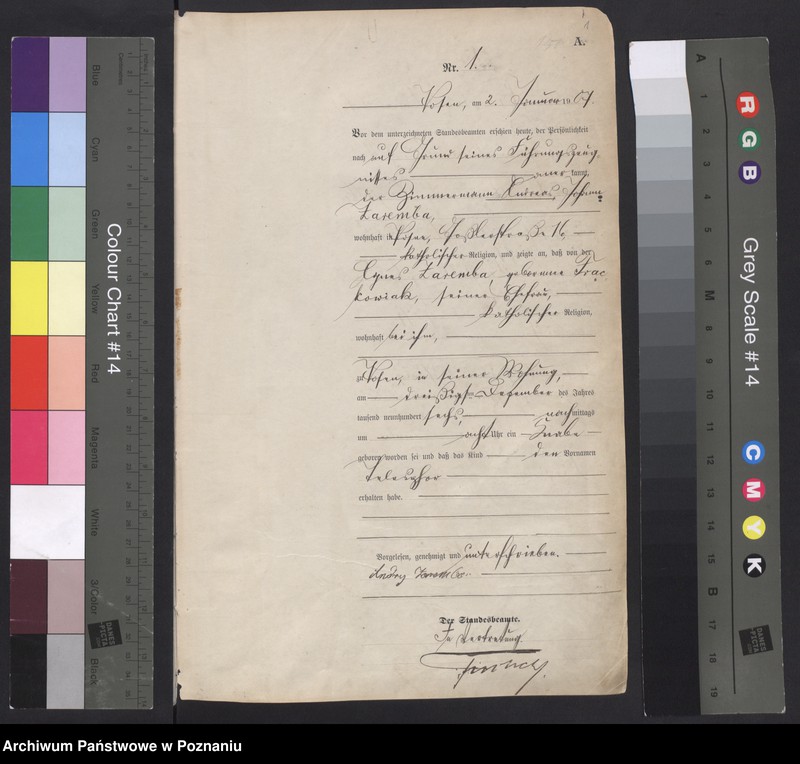 1
A.
Nr. 1.
Posen, am 2. Januar 1907.
Vor dem unterzeichneten Standesbeamten erschien heute, der Persönlichkeit
nach auf Grund seines Führungszeug-
nisses anerkannt,
der Zimmermann Andreas Johann
Zaremba,
wohnhaft in Posen, 16,
katholischer Religion, und zeigte an, daß von der
Agnes Zaremba, geborenen Frąc-
kowiak, seiner Ehefrau,
katholischer Religion,
wohnhaft bei ihm,
zu Posen, in seiner Wohnung,
am dreißigsten Dezember des Jahres
tausend neunhundert sechs, nachmittags
um acht Uhr ein Knabe
geboren worden sei und daß das Kind den Vornamen
Telesphor
erhalten habe.
Vorgelesen, genehmigt und unterschrieben.
Andrzy Zaremba.
Der Standesbeamte.
In Vertretung
Colour Chart #14
Blue
Cyan
Green
Yellow
Red
Magenta
White
3/Color
Black
Centimetres
DANES
PICTA
Grey Scale #14
R
G
B
C
M
Y
K
A
1
2
3
4
5
6
M
8
9
10
11
12
13
14
15
B
17
18
19
DANES
PICTA
Archiwum Państwowe w Poznaniu